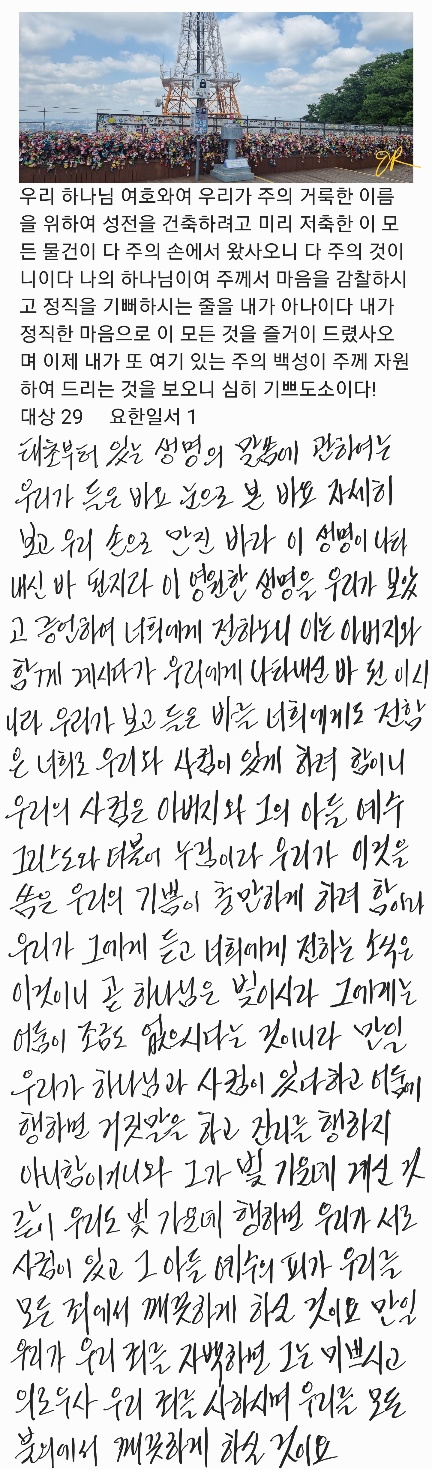 JR
우리 하나님 여호와여 우리가 주의 거룩한 이름
을 위하여 성전을 건축하려고 미리 저축한 이 모
든 물건이 다 주의 손에서 왔사오니 다 주의 것이
니이다 나의 하나님이여 주께서 마음을 감찰하시
고 정직을 기뻐하시는 줄을 내가 아나이다 내가
정직한 마음으로 이 모든 것을 즐거이 드렸사오
며 이제 내가 또 여기 있는 주의 백성이 주께 자원
하여 드리는 것을 보오니 심히 기쁘도소이다!
대상 29 요한일서 1
태초부터 있는 생명의 말씀에 관하여는
우리가 들은 바요 눈으로 본 바요 자세히
보고 우리 손으로 만진 바라 이 생명이 나타
내신 바 된지라 이 영원한 생명을 우리가 보았
고 증언하여 너희에게 전하노니 이는 아버지와
함께 계시다가 우리에게 나타내신 바 된 이시
니라 우리가 보고 들은 바를 너희에게도 전함
은 너희로 우리와 사귐이 있게 하려 함이니
우리의 사귐은 아버지와 그의 아들 예수
그리스도와 더불어 누림이라 우리가 이것을
씀은 우리의 기쁨이 충만하게 하려 함이라
우리가 그에게 듣고 너희에게 전하는 소식은
이것이니 곧 하나님은 빛이시라 그에게는
어둠이 조금도 없으시다는 것이니라 만일
우리가 하나님과 사귐이 있다하고 어둠에
행하면 거짓말을 하고 진리를 행하지
아니함이거니와 그가 빛 가운데 계신 것
같이 우리도 빛 가운데 행하면 우리가 서로
사귐이 있고 그 아들 예수의 피가 우리를
모든 죄에서 깨끗하게 하실 것이요 만일
우리가 우리 죄를 자백하면 그는 미쁘시고
의로우사 우리 죄를 사하시며 우리를 모든
불의에서 깨끗하게 하실 것이요